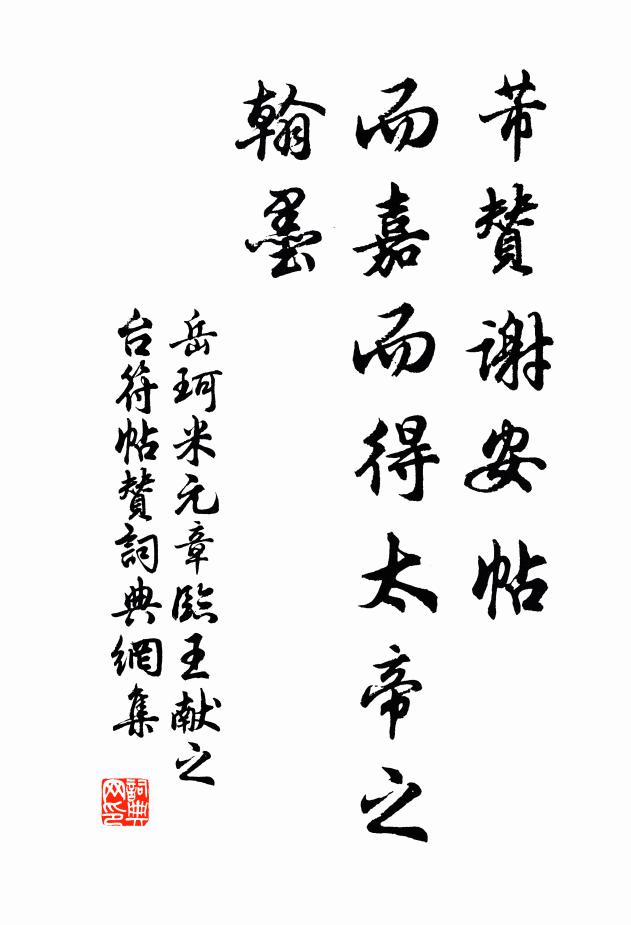 芾贊謝安帖
而嘉而得太帝之
翰墨
岳珂米元章臨王献之
台符帖贊詞典網集
詞典
网印